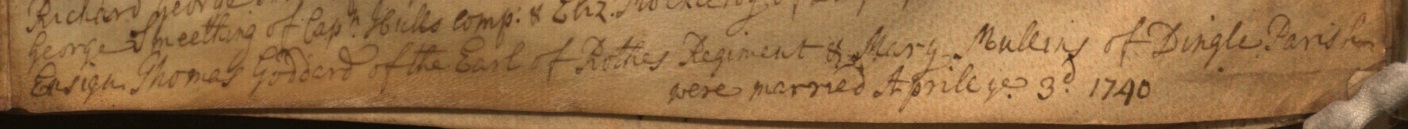 Richard George
George Smeething of Capn. Hills comp: & Eliz.
Ensign Thomas Goddard of the Earl of Rothes Regiment & Mary Mullins of Dingle Parish
were married Aprile ye. 3d. 1740